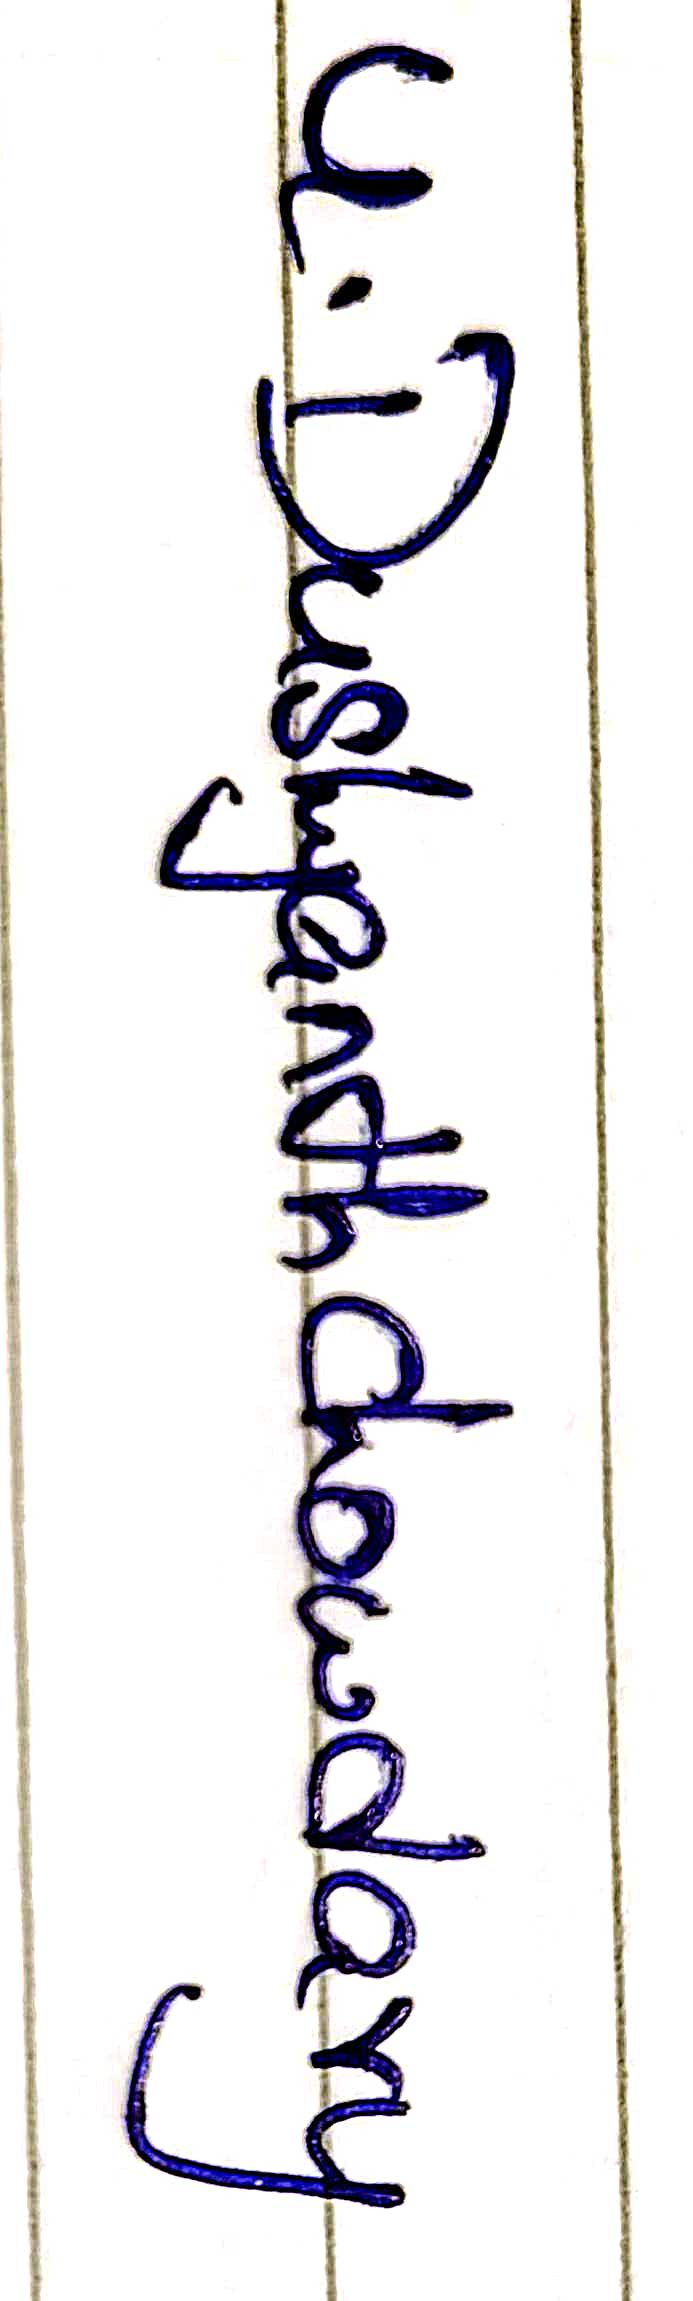 U. Dushyanth Chowdary